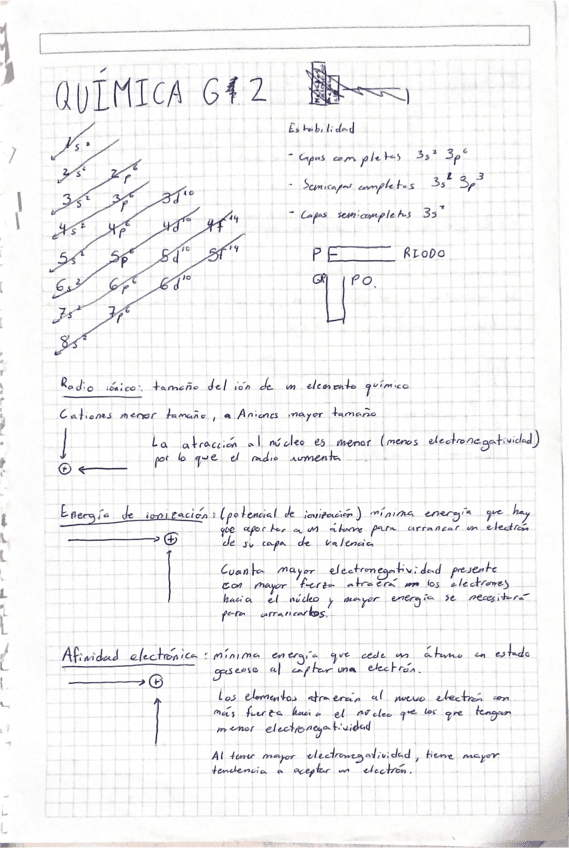 QUÍMICA G12
1s²
2s² 2p⁶
3s² 3p⁶ 3d¹⁰
4s² 4p⁶ 4d¹⁰ 4f¹⁴
5s² 5p⁶ 5d¹⁰ 5f¹⁴
6s² 6p⁶ 6d¹⁰
7s² 7p⁶
8s²
Estabilidad
- Capas completas 3s² 3p⁶
- Semicapas completas 3s² 3p³
- Capas semicompletas 3s²
PERIODO
GRUPO.
Radio iónico: tamaño del ión de un elemento químico
Cationes menor tamaño, Aniones mayor tamaño
La atracción al núcleo es menor (menos electronegatividad)
por lo que el radio aumenta
Energía de ionización: (potencial de ionización) mínima energía que hay
que aportar a un átomo para arrancar un electrón
de su capa de valencia
Cuanta mayor electronegatividad presente
con mayor fuerza atraerá los electrones
hacia el núcleo y mayor energía se necesitará
para arrancarlos.
Afinidad electrónica: mínima energía que cede un átomo en estado
gaseoso al captar una electrón.
Los elementos atraerán al nuevo electrón con
más fuerza hacia el núcleo que los que tengan
menor electronegatividad
Al tener mayor electronegatividad, tiene mayor
tendencia a aceptar un electrón.